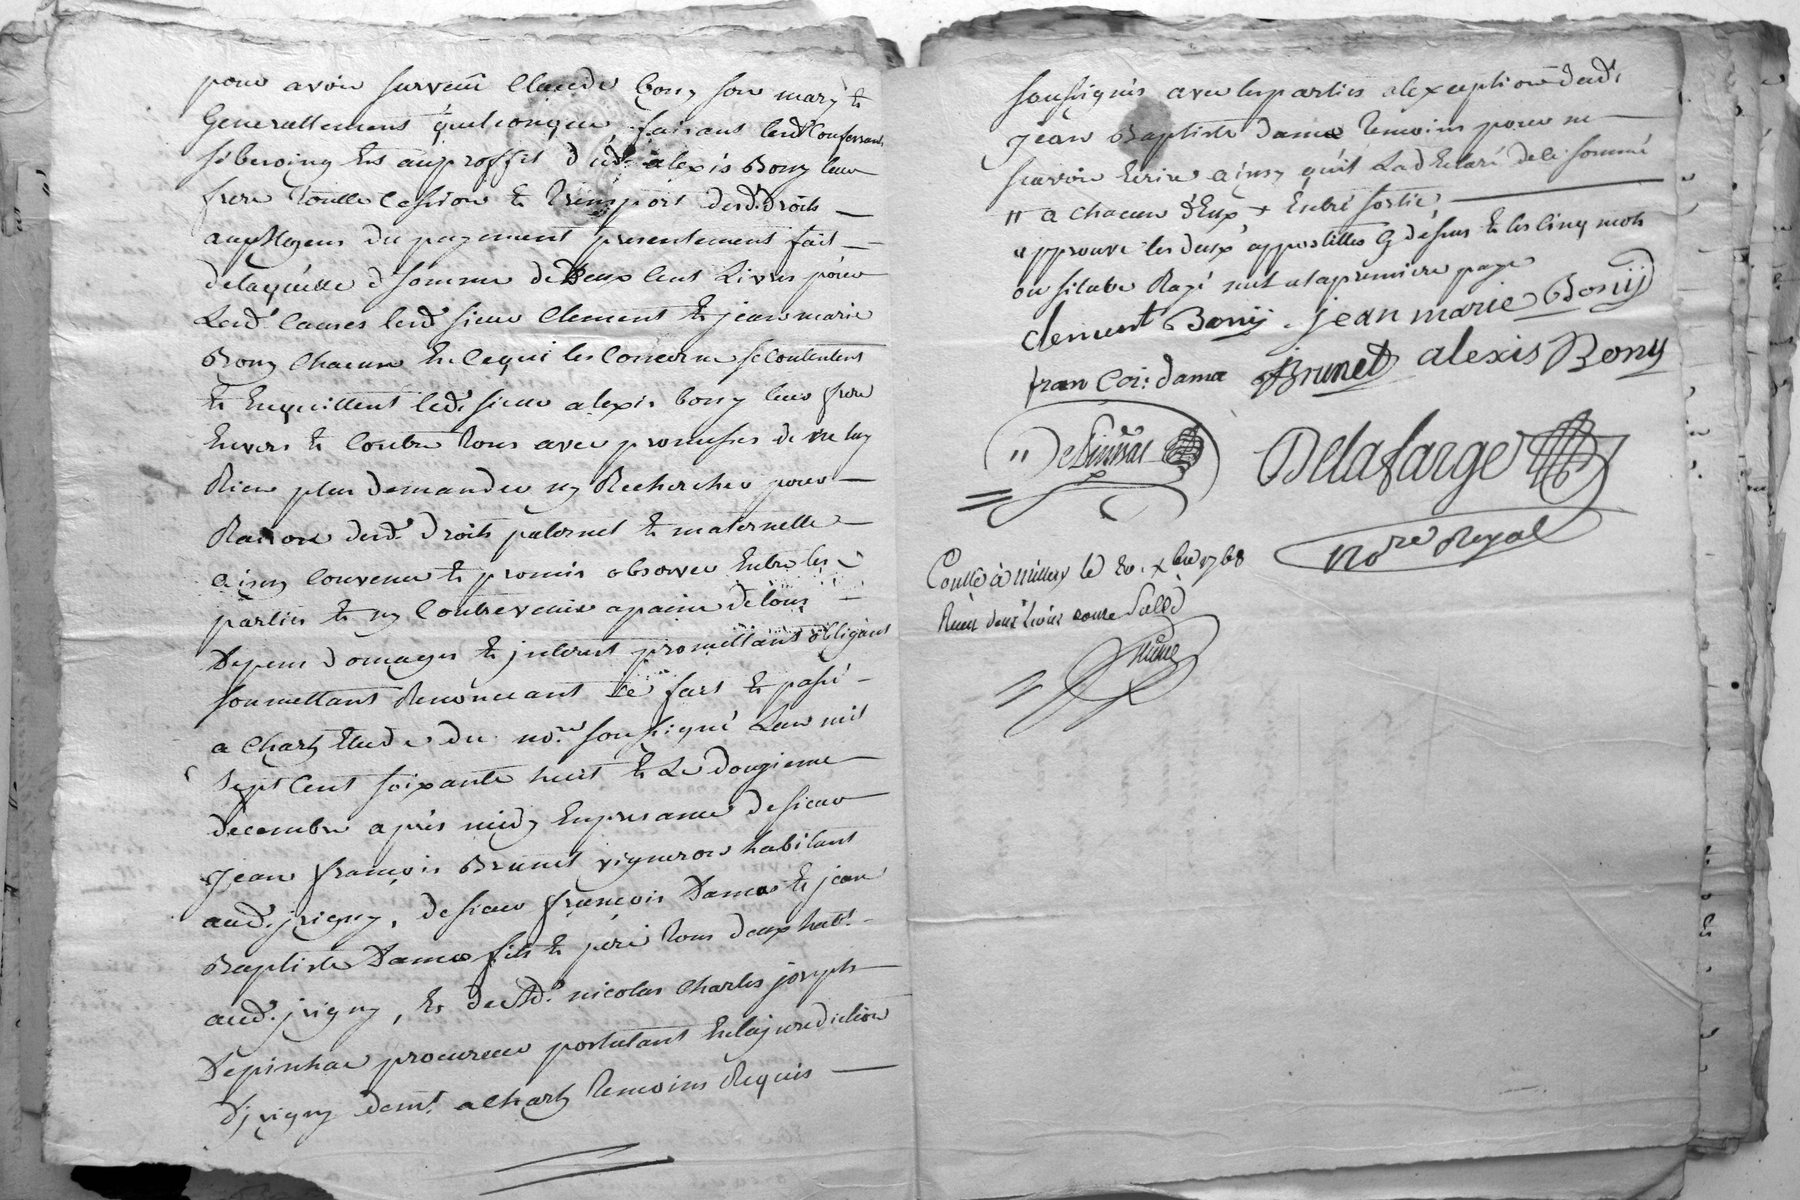 pour avoir survecû Claude Bony son mary &
Generallement quelconque faisant lesd. Confessants
frere toutte Cession & transport desd. droits
au moyens du payement presentement fait
delaquelle somme de Deux Cent Livres pour
Lesd. Causes lesd. sieur Clement & jean marie
Bony Chacun En Cequi les Concerne se Contentent
& Enquittent led. sieur alexis bony leur frere
Envers & Contre tous avec promesses de ne luy
Rien plus demander ny Rechercher pour
Raison desd. droits paternel & maternelle
ainsy Convenu & promis observer Entre les
parties & ny Contrevenir a paine de tous
Depens domages & interest promettans obligeans
soumettant Renonceant &c fait & passé
a Charly Etude du no.re soussigné Lan mil
sept Cent soixante huit & Le douzieme
decembre après midy En presance de sieur
Jean françois Brunet vigneron habitant
aud. jrigny, de sieur françois Dama & jean
Baptiste Dama fils & pere tous deux hab.t
aud. jrigny, & de Md. nicolas Charles joseph
Depinhac procureur postulant En la jurediction
d'jrigny dem.t a Charly temoins Requis
soussignés avec les parties a lexception dud.
Jean Baptiste dama temoins pour ne
savoir Ecrire ainsy quil La declaré de ce sommé
" a chacun d'Eux + Entre sortie
approuvé les deux appostilles Cy dessus & les Cinq mots
ou silabe Rayé nuls a la premiere page
clement Bony. jean marie Bonij
fran Coi: dama Brunet alexis Bony
Delafarge
No.re Royal
Contlé à millery le 20. xbre 1768
Recu deux livres douze sols